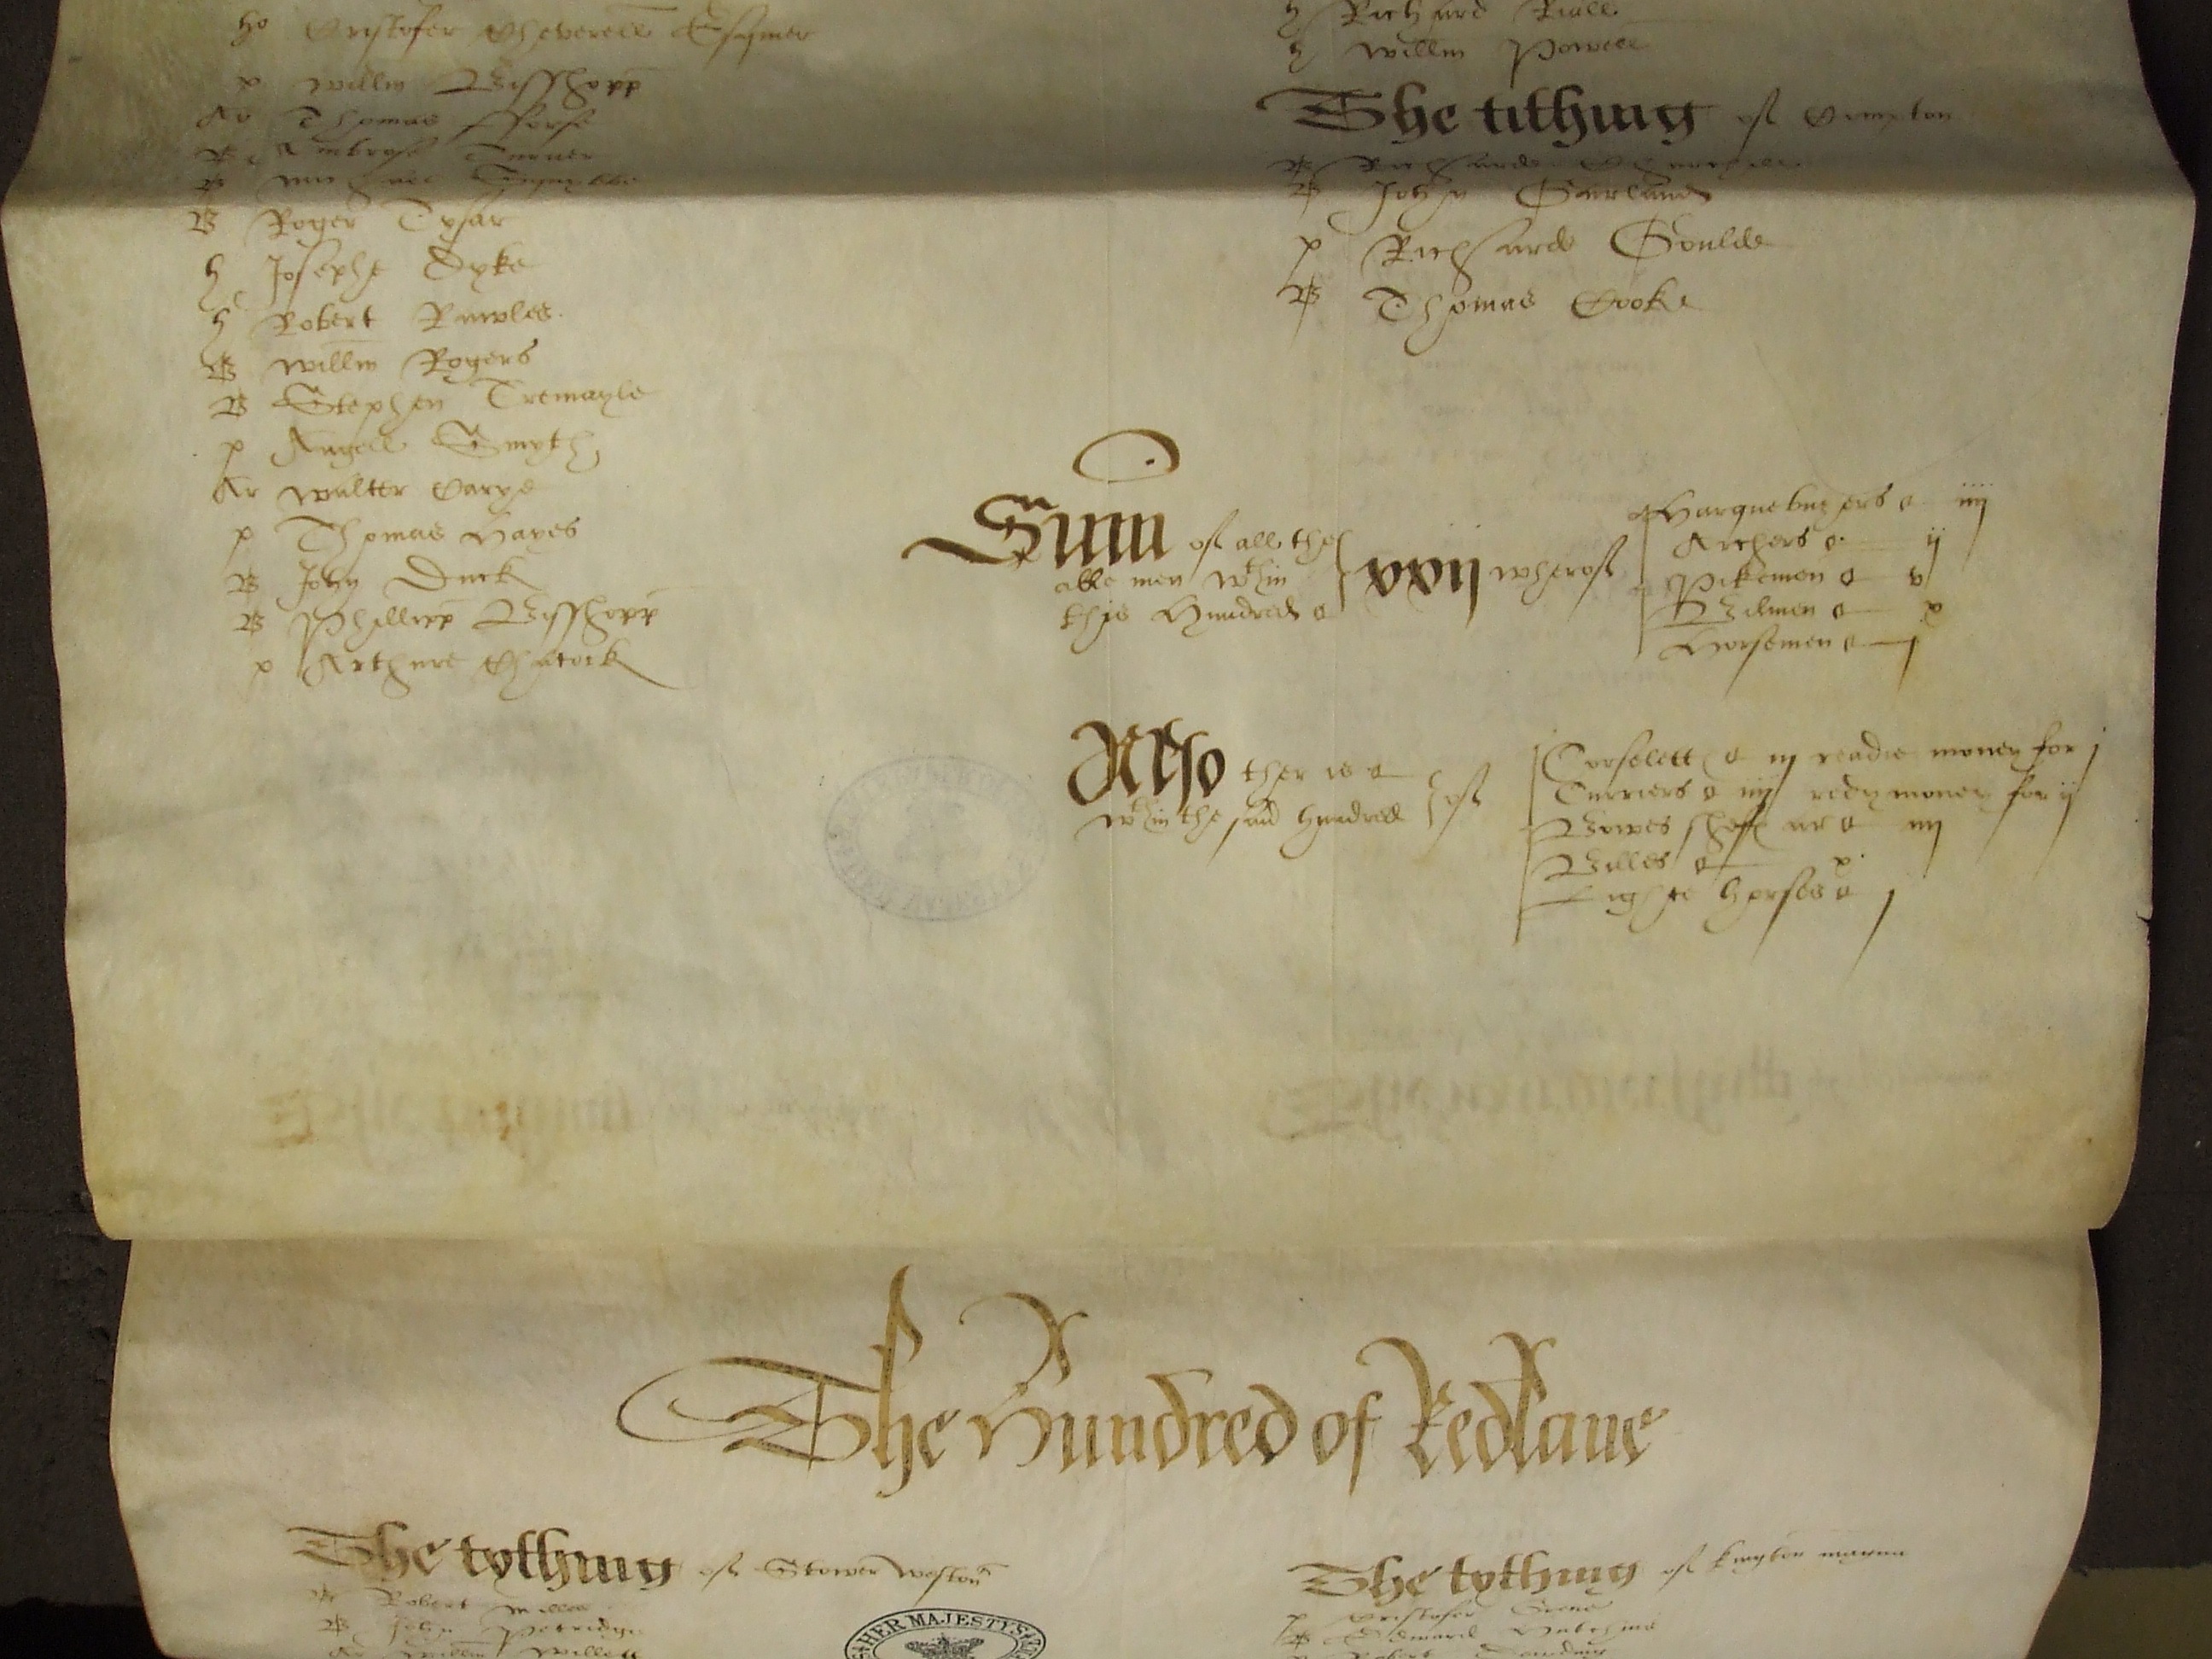 ho Cristofer Cheverell Esquier
p Willm Bisshopp
Ar Thomas
B Ambrose Turner
B
B Roger Tysar
h Josephe Dyke
h Robert Rawles
B Willm Rogers
B Stephen Tremayle
p Angell Smyth
Ar Walter Carye
p Thomas Hayes
B John Duck
B Phillipp Bisshopp
p Arthure Chacock
h Richard Riall
h Willm Powell
The tithing of Compton
B Richarde
B John Garland
p Richarde Goulde
B Thomas Cooke
Sum of all the
able men wthin
this Hundred
xxij wherof
Harquebuzers iiij
Archers ij
Pikemen v
Bilmen x
Horsemen j
Also ther is
wthin the said hundred
of
Corselett iij readie money for j
Curriers iiij redy money for ij
Bowes sheff ar iiij
Billes x
Lighte horses j
The Hundred of Redlane
The tythinng of Stower Weston
B Robert Miller
B John Petridge
Ar Willm Willett
The tythinng of Kington magna
p Cristofer Grene
B Edward Hutchins
Robert
HER MAJESTY'S